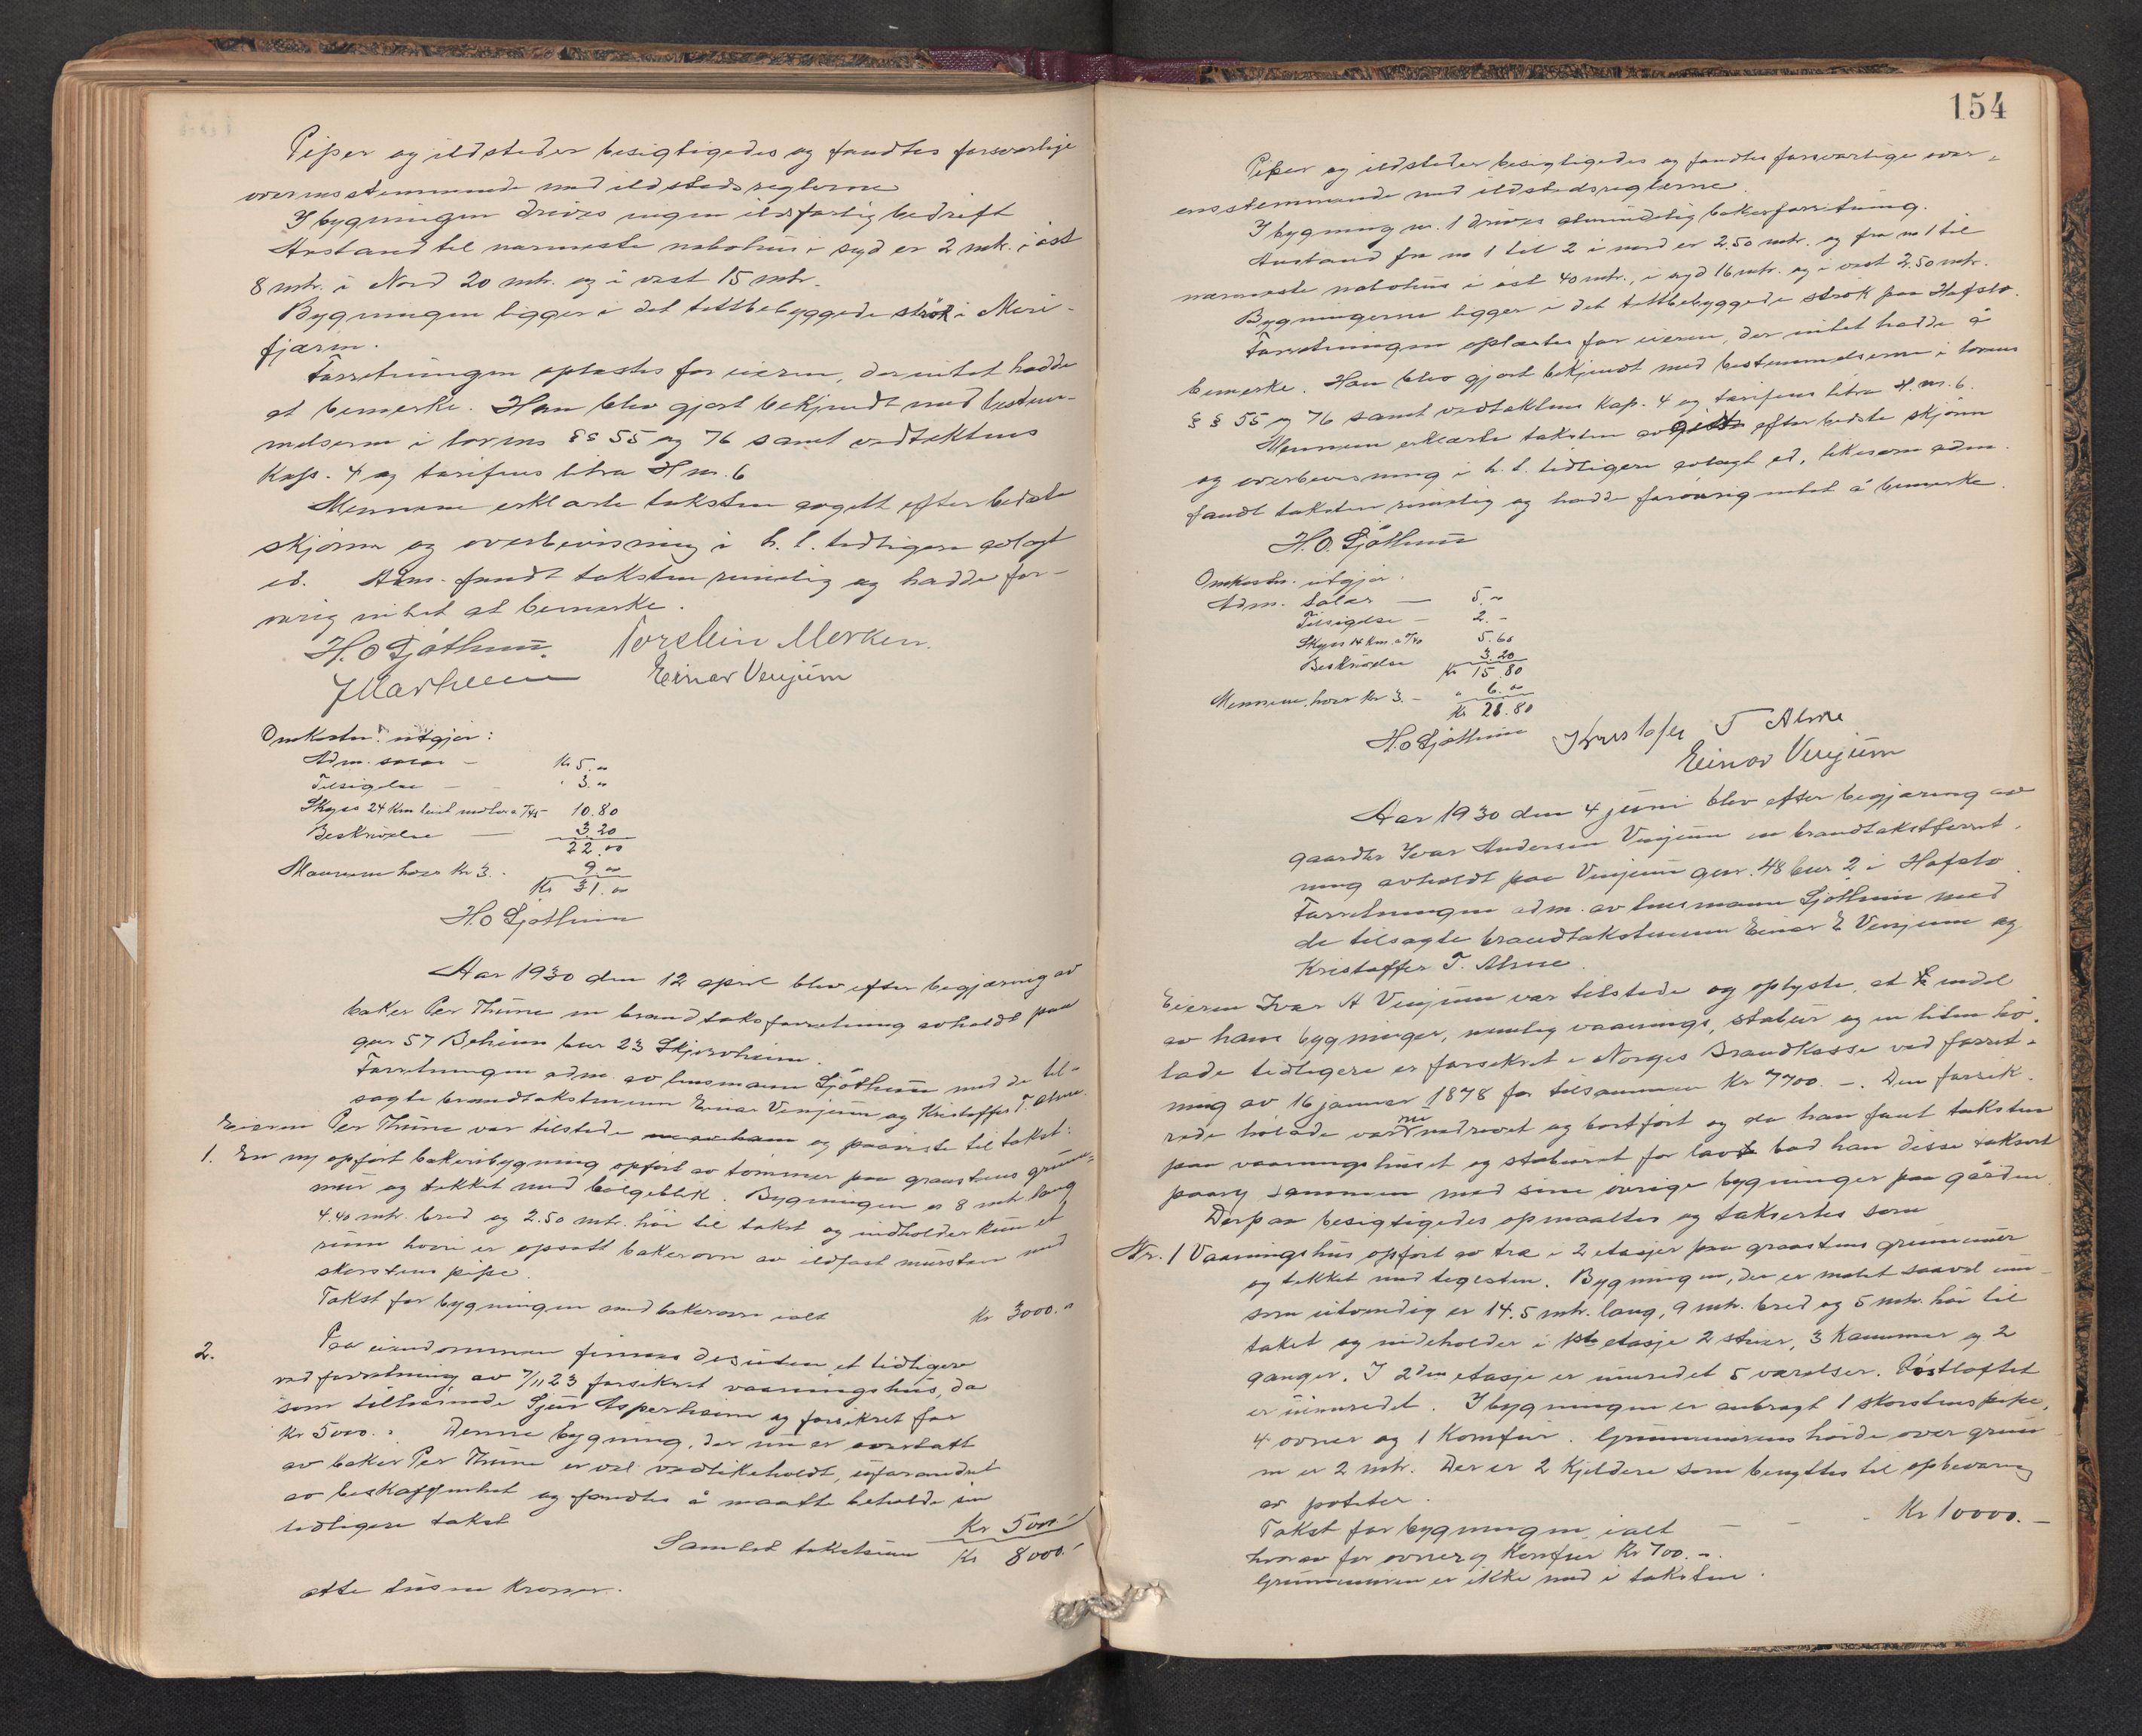 Piper og ildsteder besigtigedes og fandtes forsvarlige
overensstemmende med ildstedsreglerne
I bygningen drives ingen ildsfarlig bedrift
Avstand til nærmeste nabohus i syd er 2 mtr. i øst
8 mtr. i Nord 20 mtr. og i vest 15 mtr.
Bygningen ligger i det tettbebyggede strøk i Meri-
fjæren.
Forretningen oplæstes for eieren, der intet hadde
at bemerke. Han blev gjort bekjendt med bestem-
melserne i lovens §§ 55 og 76 samt vedtektens
Kap. 4 og tarifens litra H nr. 6
Mennene erklærte taksten avgitt efter bedste
skjønn og overbevisning i h. t. tidligere avlagt
ed. Adm. fandt taksten rimelig og hadde for-
øvrig intet at bemerke.
H. O Sjøthun. Torstein Morken.
Einar Venjum
Omkostn. utgjør:
Adm. salær - Kr 5.„
Tilsigelse - " 3.„
Skyss 24 Km 10.80
Beskrivelse - 3.20
22.00
Mennene hver Kr 3.- 9.„
Kr 31.„
H. O Sjøthun
Aar 1930 den 12 april blev efter begjæring av
baker Per Thune en brandtaksforretning avholdt paa
gnr 57 bnr 23 Skjervheim.
Forretningen adm. av lensmann Sjøthun med de til-
sagte brandtakstmenn Einar Venjum og Kristoffer T. Alme.
Eieren Per Thune var tilstede og paaviste til takst:
1. En ny opført bakeribygning opført av tømmer paa graastens grunn-
mur og tekket med bølgeblik. Bygningen er 8 mtr. lang
4.40 mtr. bred og 2.50 mtr. høi til takst og indholder kun et
rum hvori er opsatt bakerovn av ildfast mursten med
skorstens pipe.
Takst for bygningen med bakerovn ialt Kr 3000.„
2. Paa eiendommen finnes desuden et tidligere
ved forretning av 7/11 23 forsikret vaaningshus, da
som tilhørende Sjur Asperheim og forsikret for
Kr 5000.- Denne bygning, der nu er overtatt
av baker Per Thune er vel vedlikeholdt, uforandret
av beskaffenhet og fandtes å maatte beholde sin
tidligere takst Kr 5000.-
Samlet takstsum Kr 8000.-
otte tusen kroner.
154
Piper og ildsteder besigtigedes og fandtes forsvarlige over-
ensstemmende med ildstedsreglerne.
I bygning nr. 1 drives almindelig bakerforretning.
Avstand fra nr 1 til 2 i nord er 2.50 mtr. og fra nr 1 til
nærmeste nabohus i øst 40 mtr., i syd 16 mtr. og i vest 2.50 mtr.
Bygningerne ligger i det tettbebyggede strøk paa Hafslo.
Forretningen oplæstes for eieren, der intet hadde å
bemerke. Han blev gjort bekjendt med bestemmelserne i lovens
§ § 55 og 76 samt vedtektens Kap. 4 og tarifens litra H. nr. 6.
Mennene erklærte taksten avgitt efter bedste skjønn
og overbevisning i h. t. tidligere avlagt ed, likesom adm.
fandt taksten rimelig og hadde forøvrig intet å bemerke.
H. O. Sjøthun
Omkostn. utgjør.
Adm. Salær - 5.„
Tilsigelse - 2.-
Skyss 14 Km. a /40 5.60
Beskrivelse 3.20
Kr 15.80
Mennene hver Kr 3.- " 6.„
Kr 21.80
H. O Sjøthun Kristofer T Alme
Einar Venjum
Aar 1930 den 4 juni blev efter begjæring av
gaardbr. Ivar Andersen Venjum en brandtakstforret-
ning avholdt paa Venjum gnr. 48 bnr 2 i Hafslo.
Forretningen adm. av lensmann Sjøthun med
de tilsagte brandtakstmenn Einar E Venjum og
Kristoffer T. Alme.
Eieren Ivar A Venjum var tilstede og oplyste, at endel
av hans bygninger, nemlig vaanings, stabur og en liten hø-
lade tidligere er forsikret i Norges Brandkasse ved forret-
ning av 16 januar 1878 for tilsammen Kr 7700.-. Den forsik-
rede hølade var nu nedrevet og bortført og da han fant taksten
paa vaaningshuset og staburet for lav bad han disse taksert
paany sammen med sine øvrige bygninger paa gården.
Derpaa besigtigedes opmaaltes og taksertes som
Nr. 1 Vaaningshus opført av træ i 2 etasjer paa graastens grunnmur
og tekket med teglsten. Bygningen, der er malet saavel inn-
som utvendig er 14.5 mtr. lang, 9 mtr. bred og 5 mtr. høi til
taket og indeholder i 1ste etasje 2 stuer, 3 Kammer og 2
ganger. I 2den etasje er innredet 5 værelser. Røstloftet
er uinnredet. I bygningen er anbragt 1 skorstenspipe,
4 ovner og 1 Komfur. Grunnmurens høide over grun-
nen er 2 mtr. Der er 2 Kjeldere som benyttes til opbevaring
av poteter.
Takst for bygningen ialt - - - Kr 10000.-
hvorav for ovner og Komfur Kr 700.-.
Grunnmuren er ikke med i taksten.